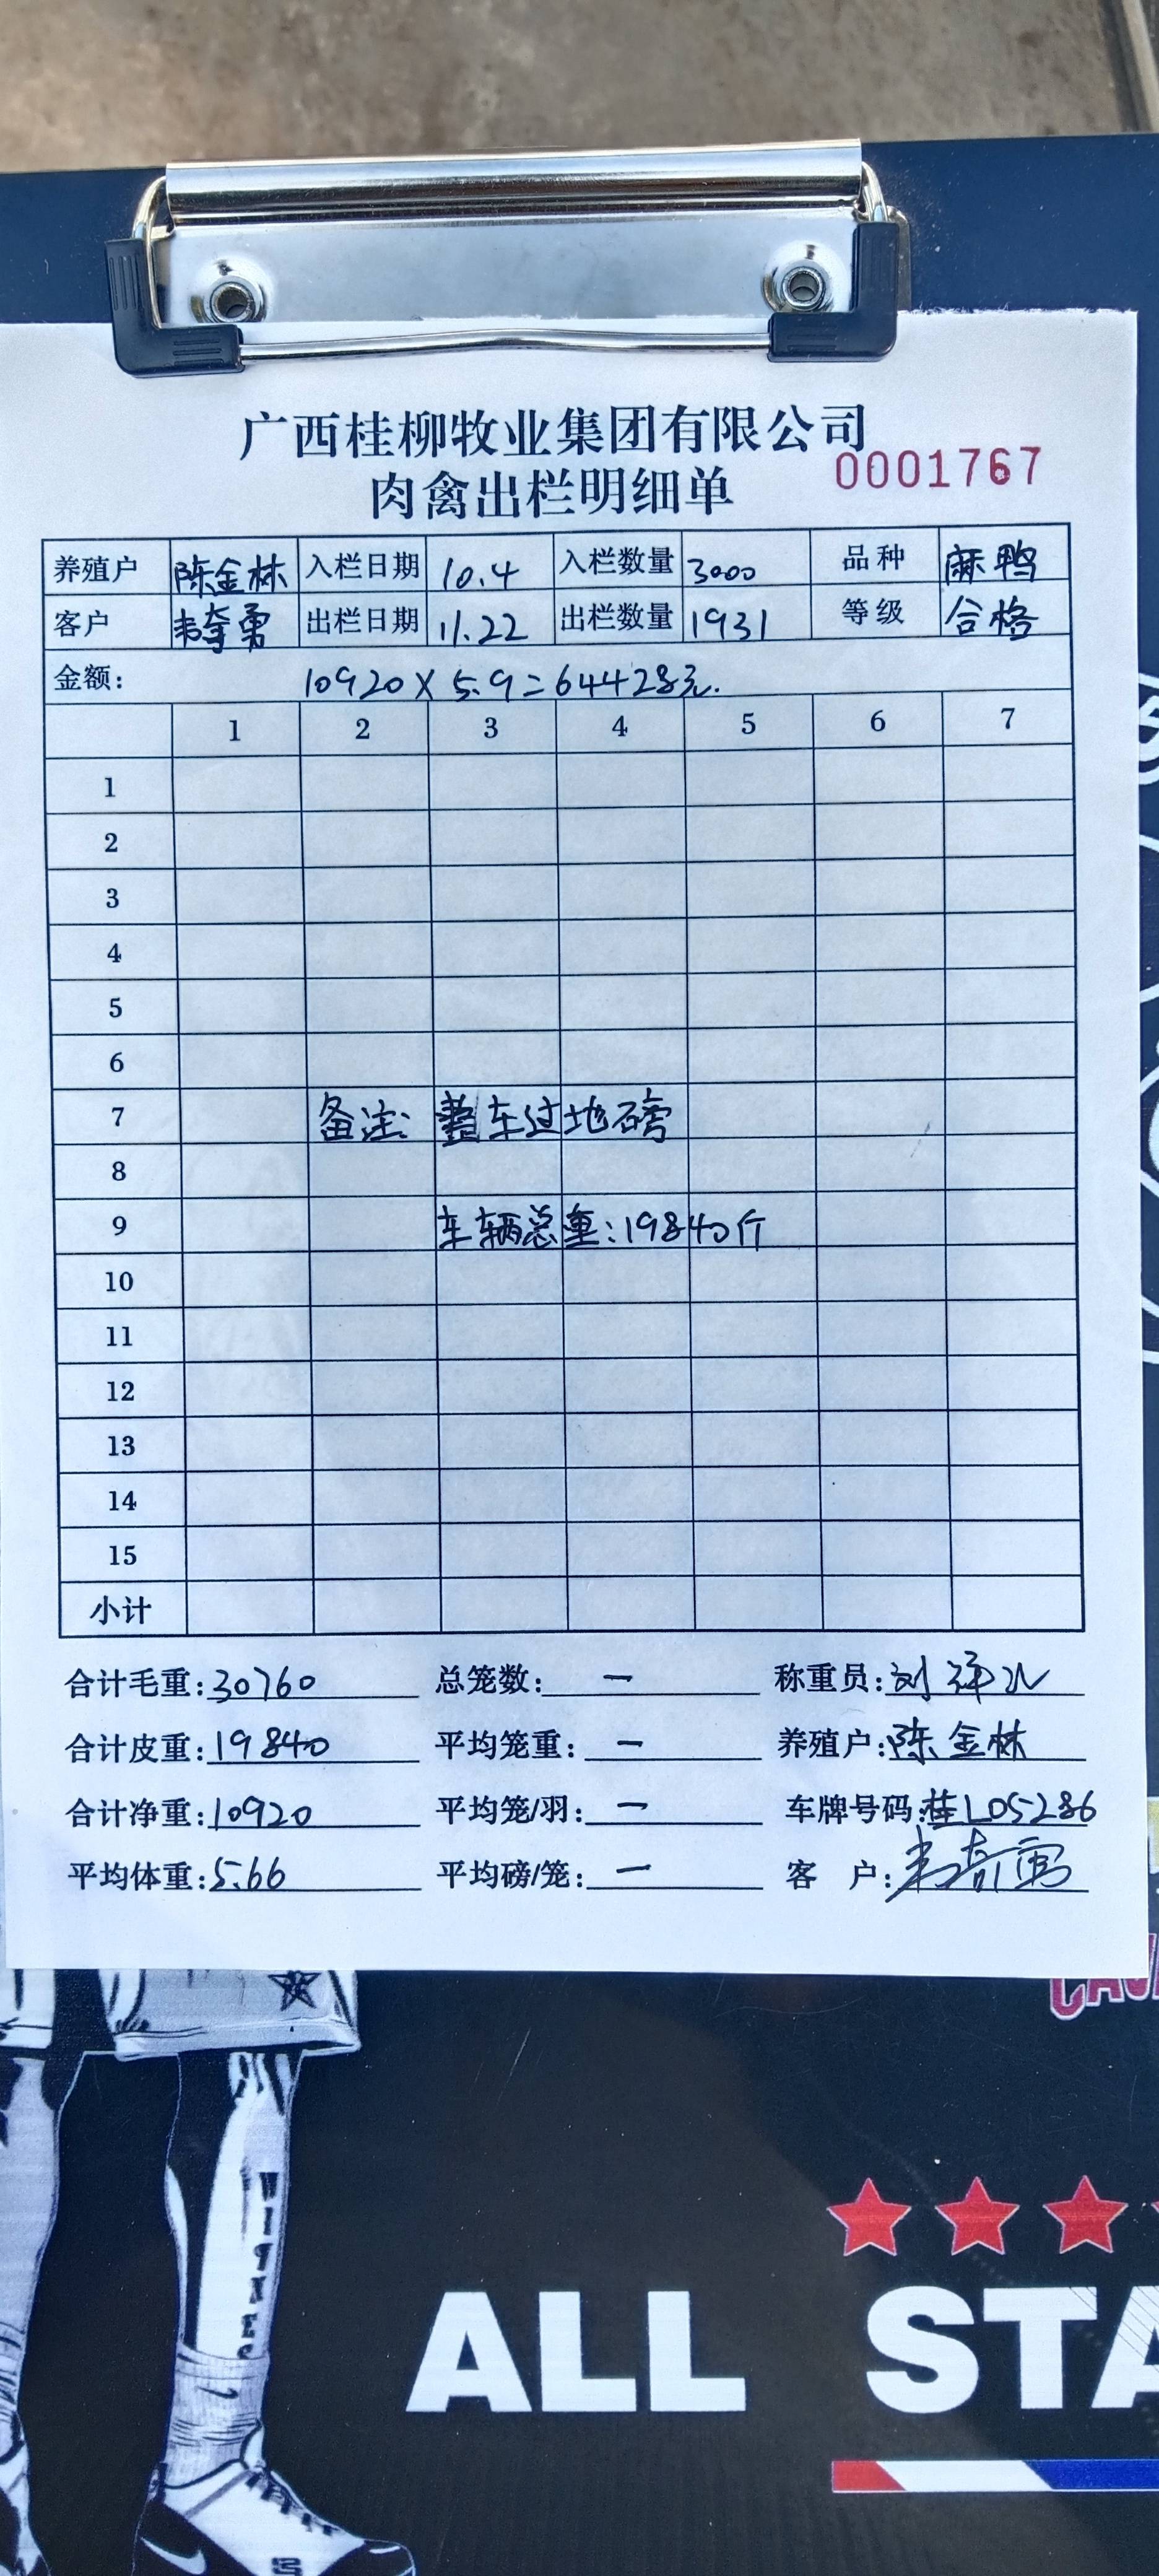 广西桂柳牧业集团有限公司
0001767
肉禽出栏明细单
养殖户 陈金林 入栏日期 10.4 入栏数量 3000 品种 麻鸭
客户 韦奇勇 出栏日期 11.22 出栏数量 1931 等级 合格
金额: 10920×5.9=64428元.
1 2 3 4 5 6 7
1
2
3
4
5
6
7 备注: 整车过地磅
8
9 车辆总重:19840斤
10
11
12
13
14
15
小计
合计毛重:30760 总笼数: — 称重员:刘
合计皮重:19840 平均笼重: — 养殖户:陈金林
合计净重:10920 平均笼/羽: — 车牌号码:桂L05286
平均体重:5.66 平均磅/笼: — 客 户:韦奇勇
ALL STA